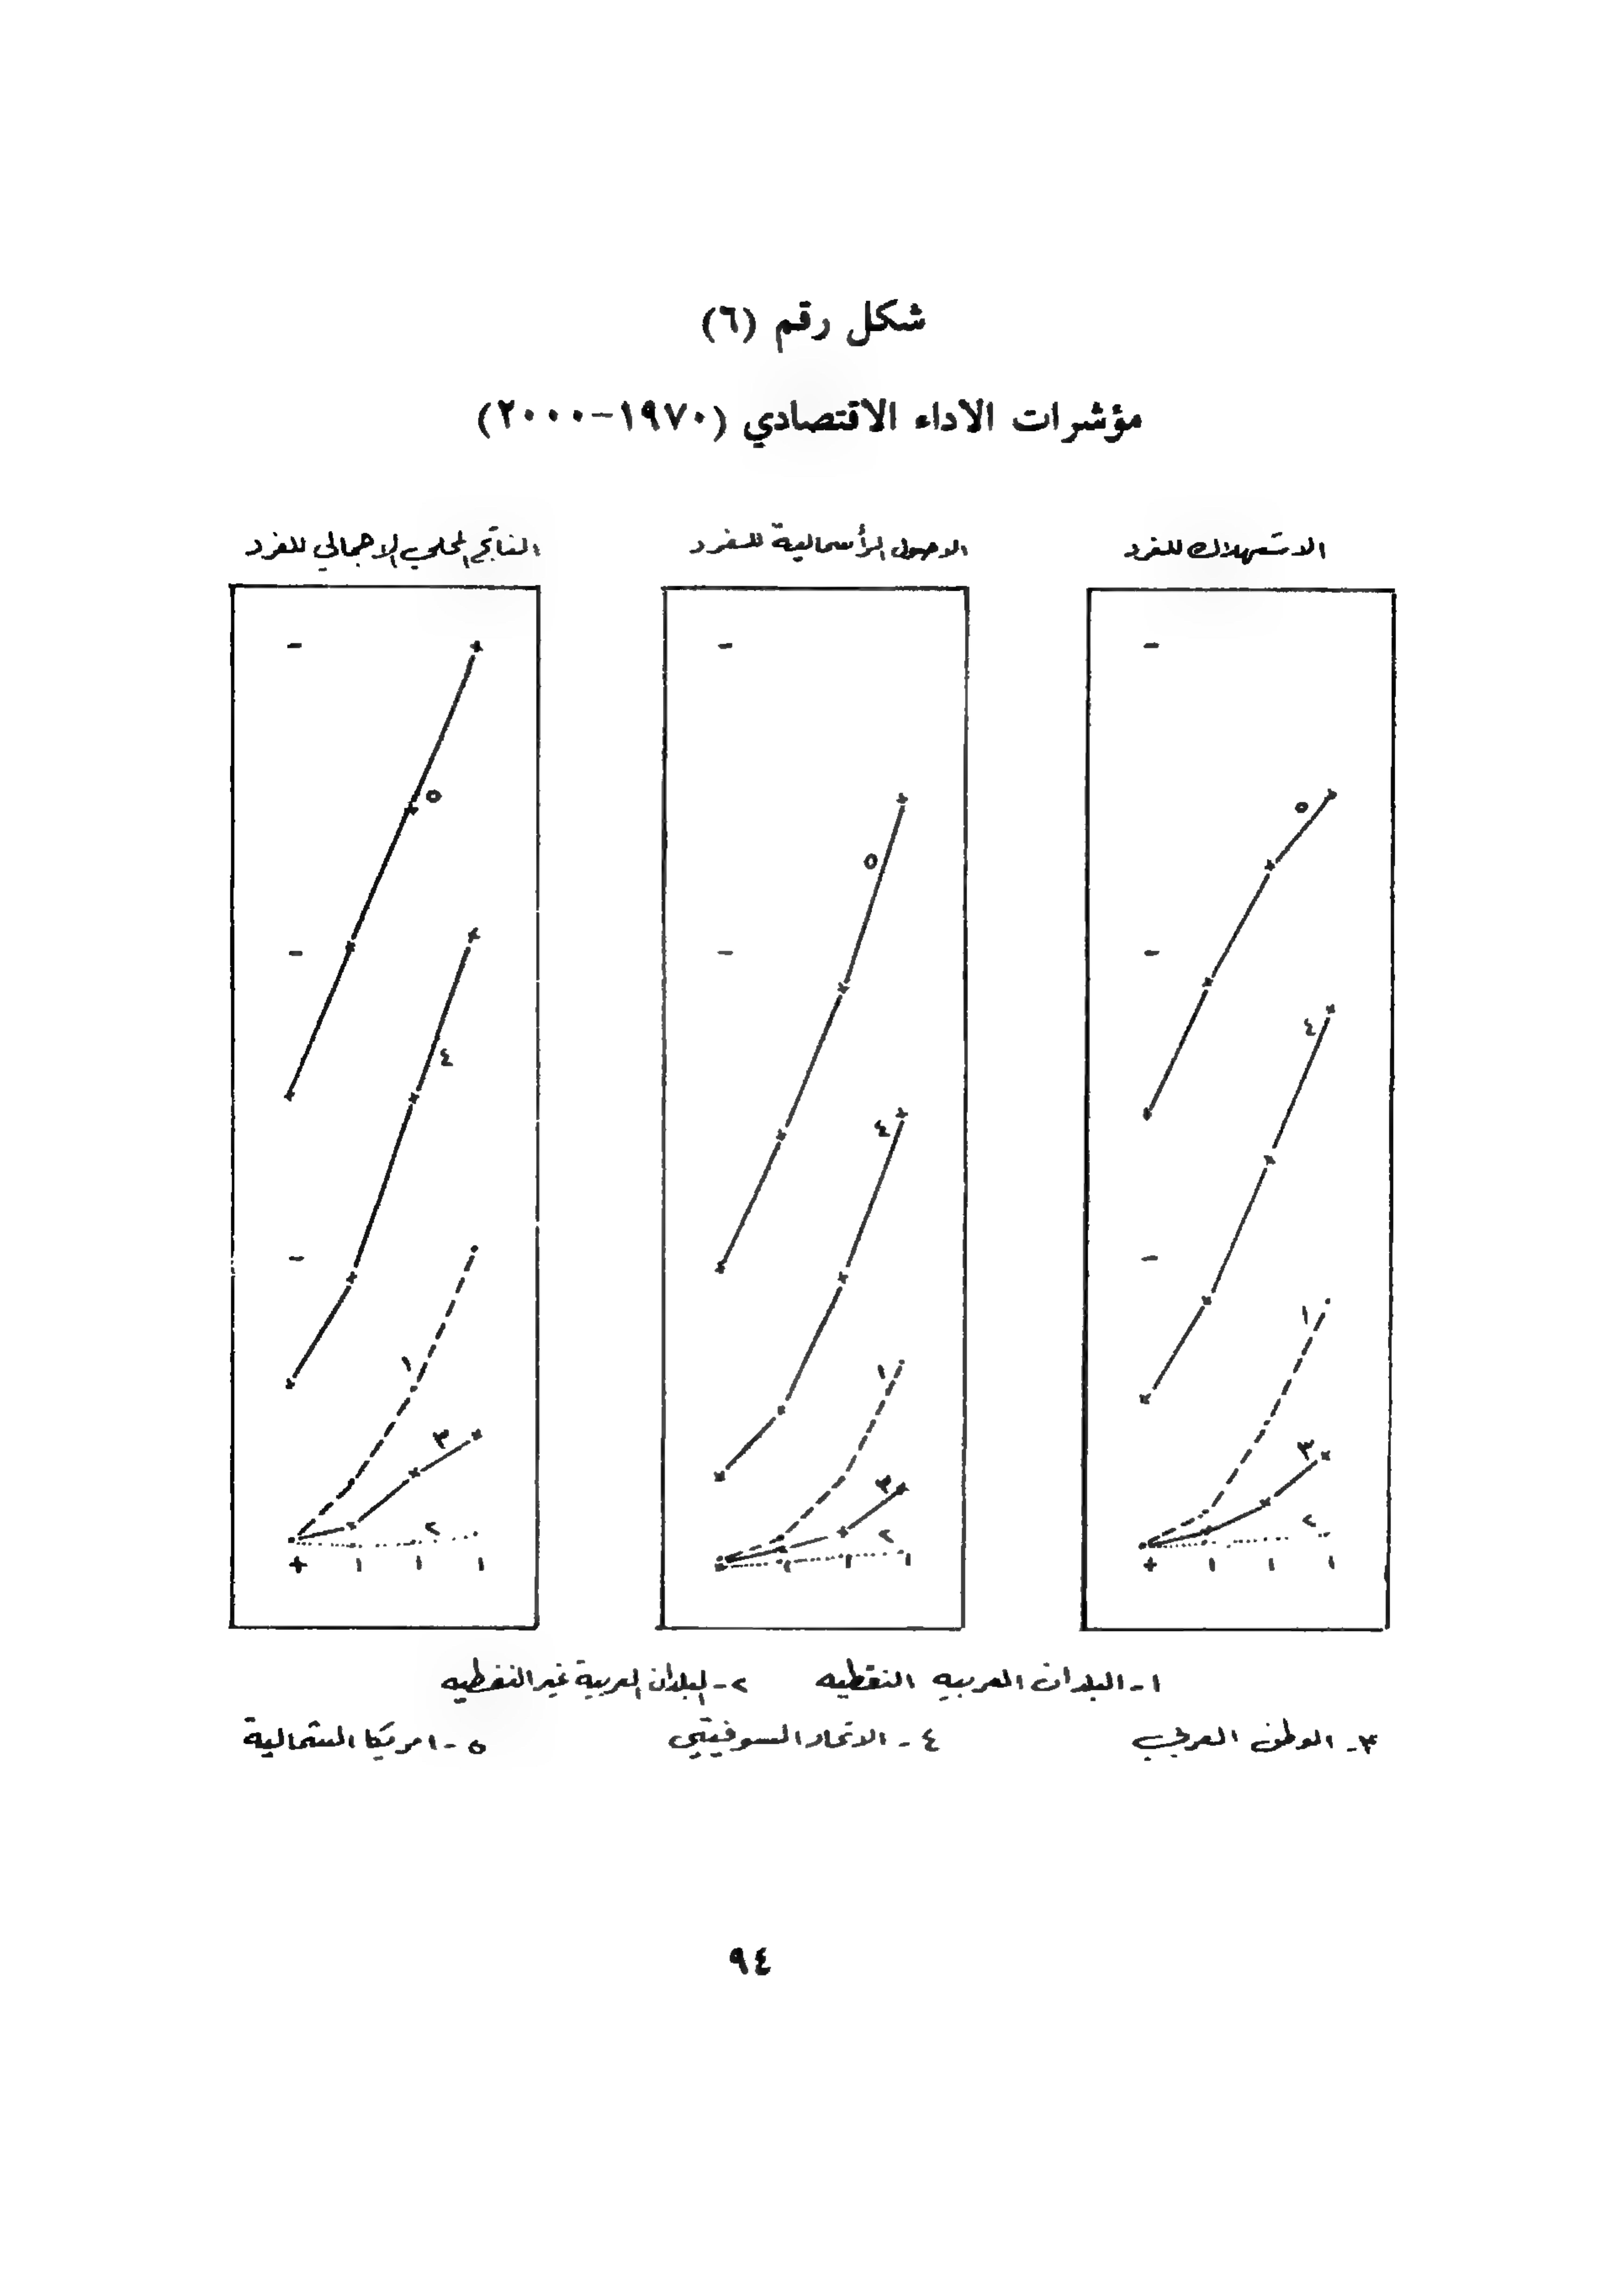 شكل رقم (٦)
مؤشرات الاداء الاقتصادي (١٩٧٠-٢٠٠٠)
الاستهلاك للفرد
الاصول الرأسمالية للفرد
الناتج المحلي الاجمالي للفرد
٥
٤
١
٣
٢
٥
٤
١
٣
٢
٥
٤
١
٣
٢
١- البلدان العربيه النفطيه ٢- البلدان العربية غير النفطيه
٣- الوطن العربي ٤- الاتحاد السوفيتي ٥- امريكا الشمالية
٩٤